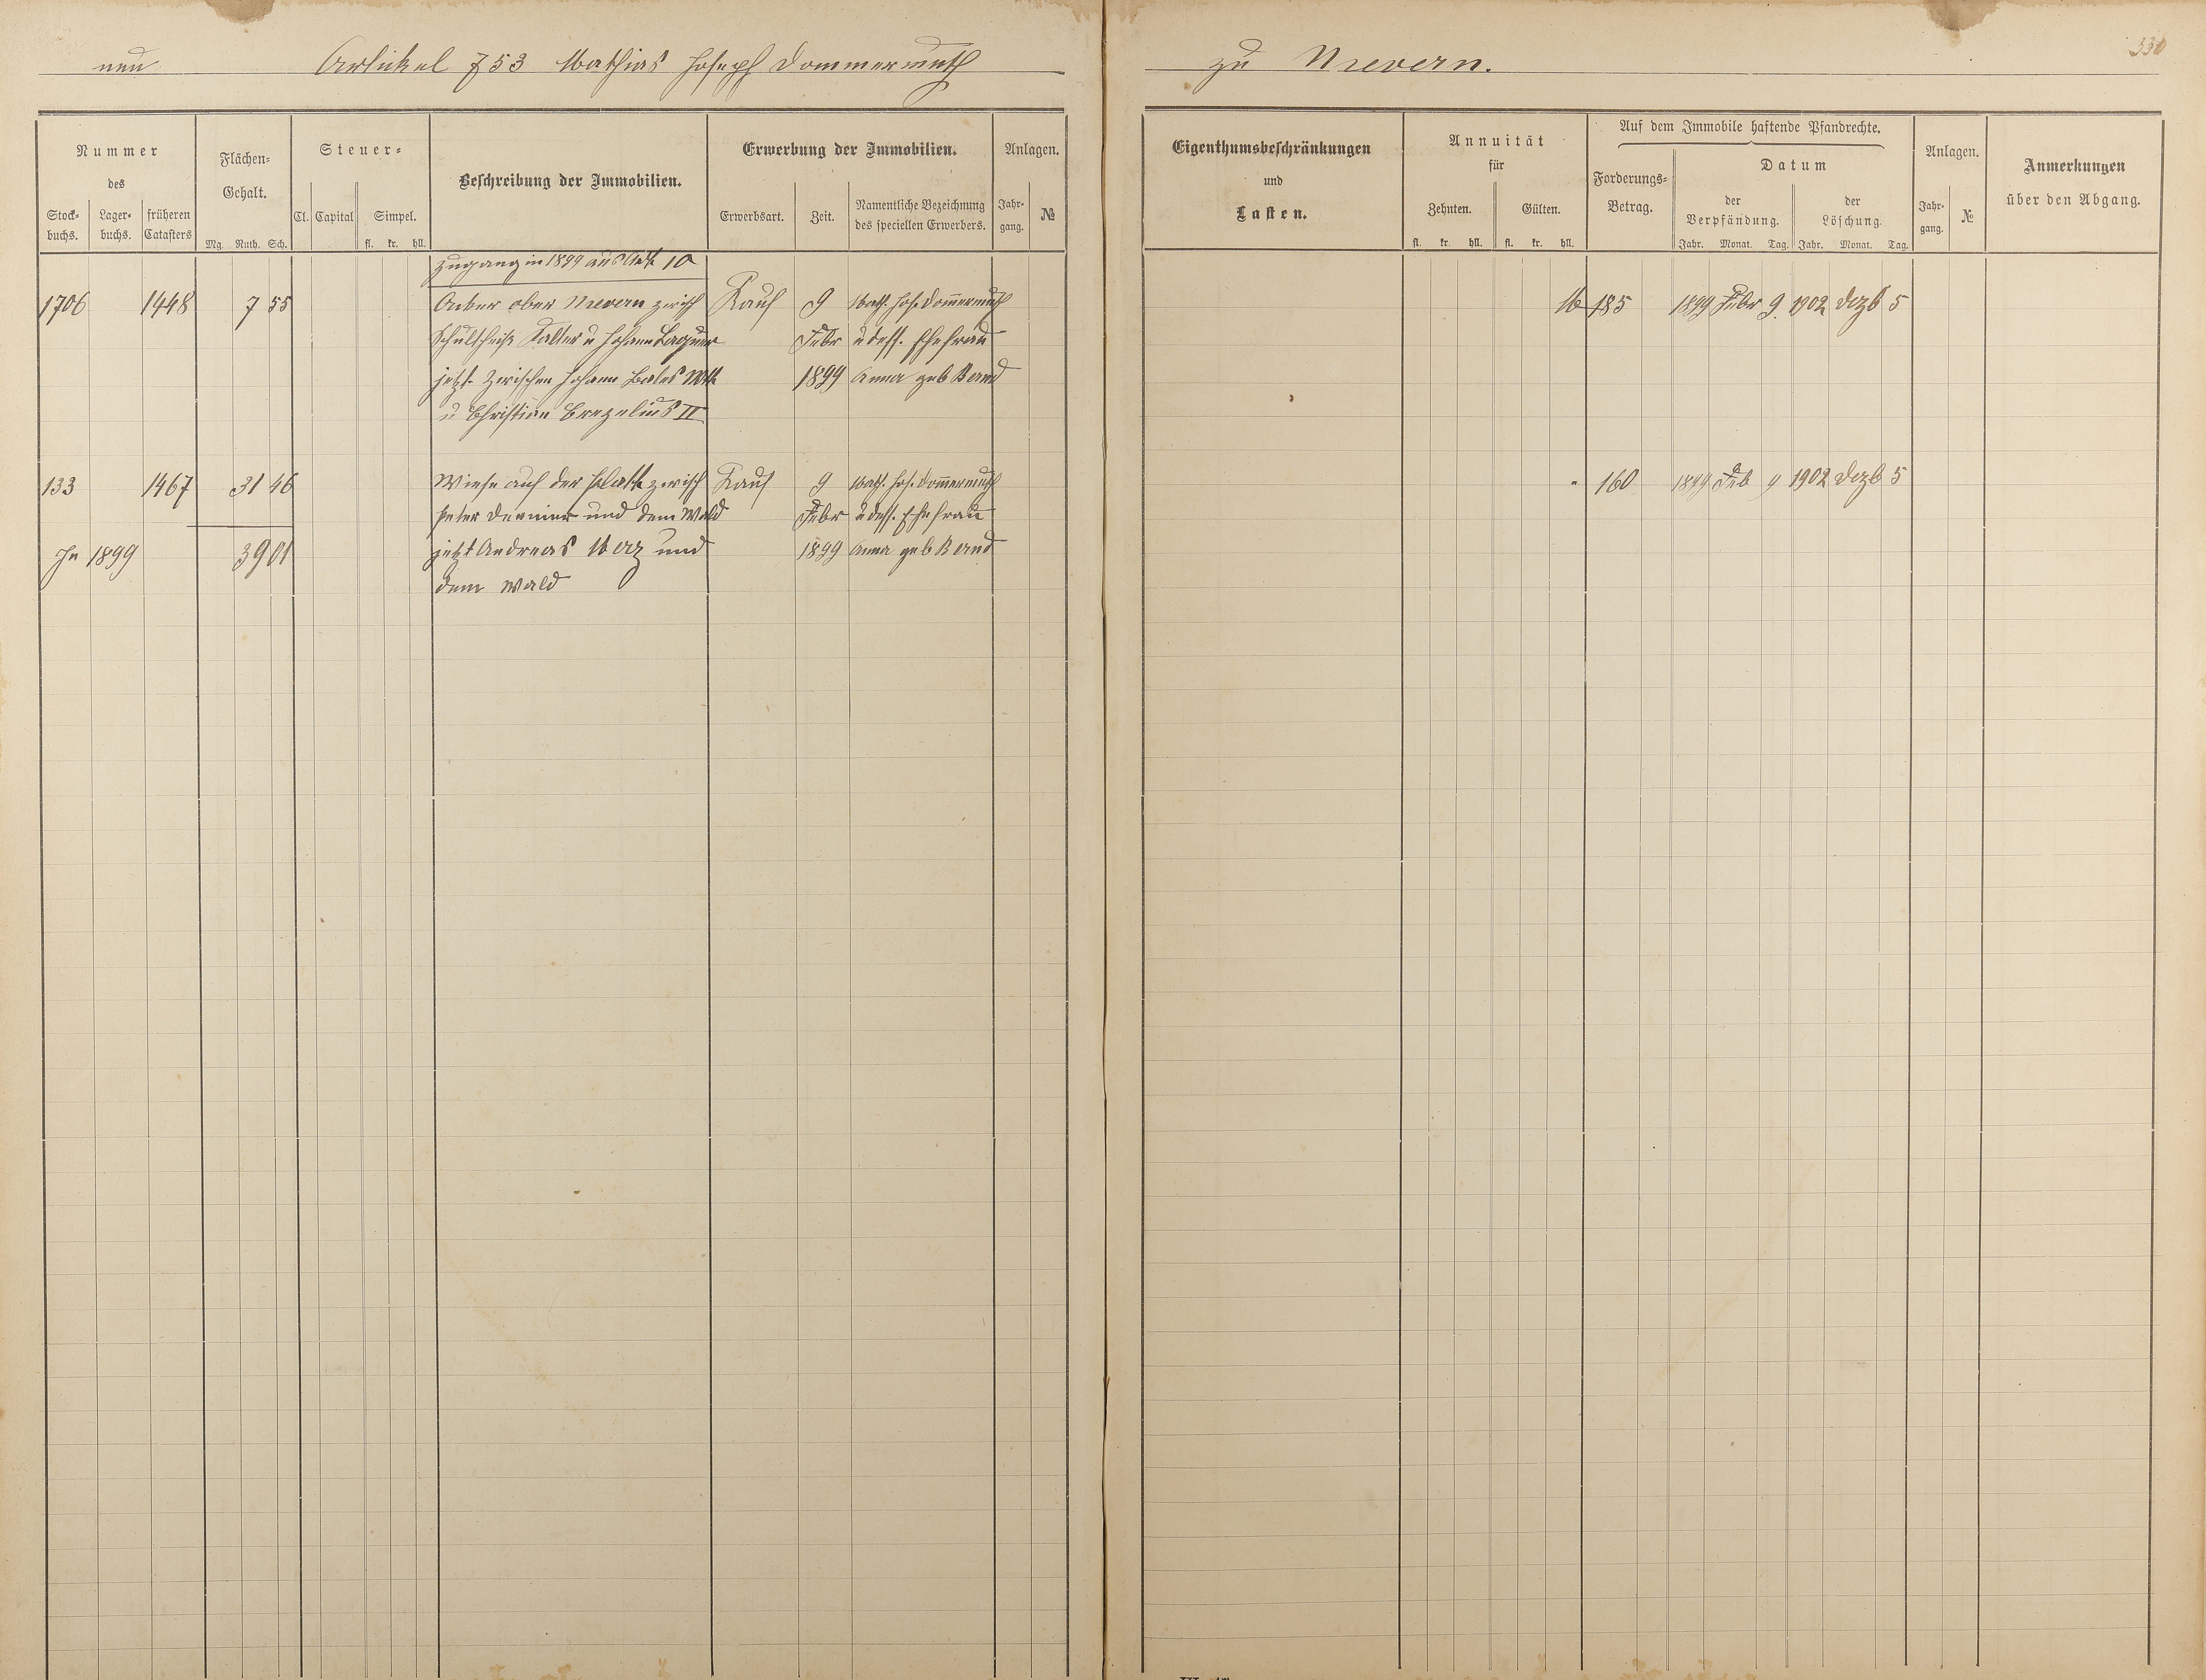 nun Artikel 753 Mathias Joseph Dommermuth zu Nievern.
330
Nummer
des
Stock-
buchs.
Lager-
buchs.
früheren
Catasters
Flächen-
Gehalt.
Mg. Ruth. Sch.
Steuer-
Cl. Capital Simpel.
fl. kr. hll.
Beschreibung der Immobilien.
Erwerbung der Immobilien.
Erwerbsart. Zeit.
Namentliche Bezeichnung
des speciellen Erwerbers.
Anlagen.
Jahr-
gang.
№
Eigenthumsbeschränkungen
und
Lasten.
Annuität
für
Zehnten. Gülten.
fl. kr. hll. fl. kr. hll.
Auf dem Immobile haftende Pfandrechte.
Forderungs-
Betrag.
Datum
der
Verpfändung.
der
Löschung.
Jahr. Monat. Tag. Jahr. Monat. Tag.
Anlagen.
Jahr-
gang.
№
Anmerkungen
über den Abgang.
Zugang in 1899 aus Art. 10
1706 1448 7 55 Acker ober Nievern zwisch Kauf 9 Math. Jos. Dommermuth M 185 1899 Febr 9. 1902 Dezb 5
Schultheiß Kalter u Johann Febr u dess. Ehefrau
jetzt zwischen Johann 1899 Anna geb Band
u Christian II
133 1467 31 46 Wiese auf der Platte zwisch Kauf 9 Math. Jos. Dommermuth " 160 1899 Feb 9 1902 Dezb 5
Peter und dem Wald Febr u dess. Ehefrau
In 1899 39 01 jetzt Andreas Merz und 1899 Anna geb Band
dem Wald